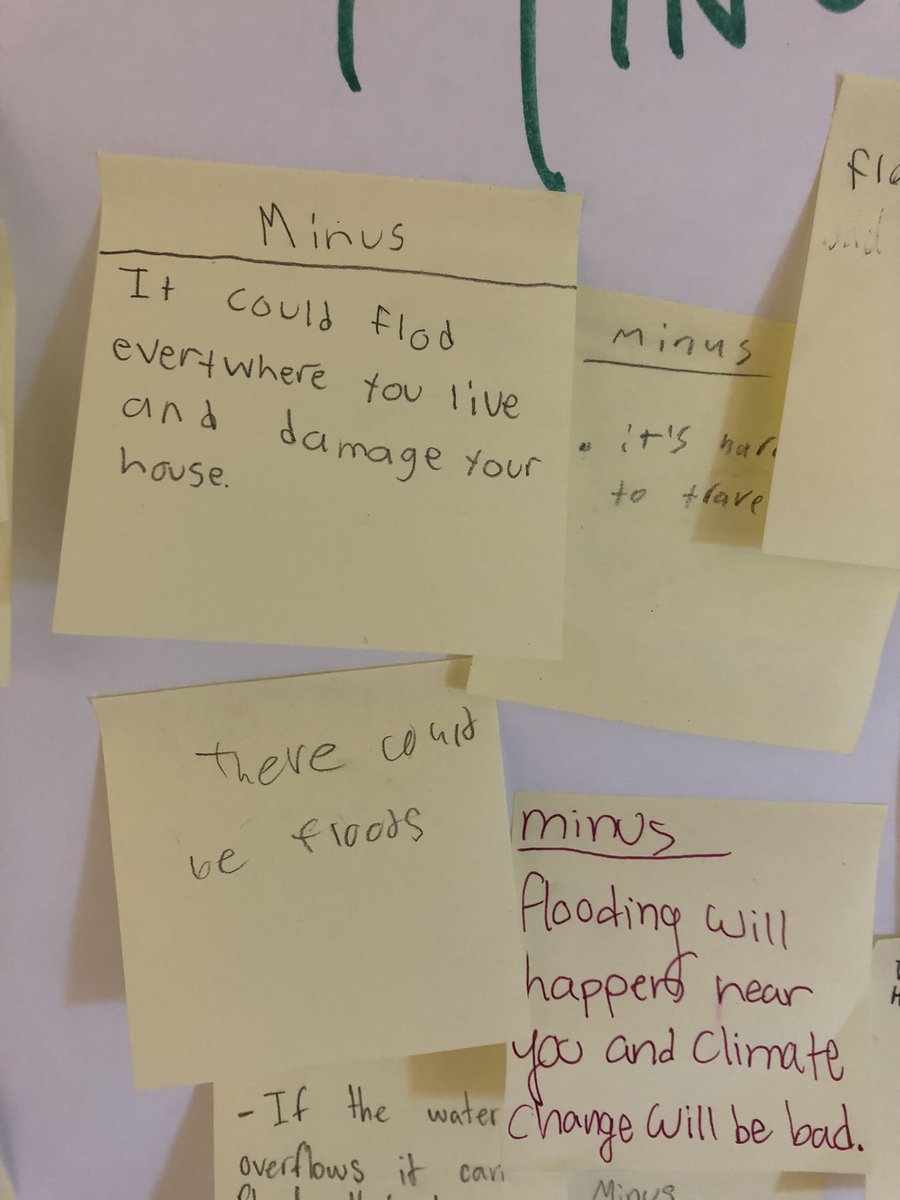 Minus
It could flod
everywhere you live
and damage your
house.
minus
• it's
to
there could
be floods
minus
flooding will
happen near
you and climate
change will be bad.
- If the water
overflows it can
Minus